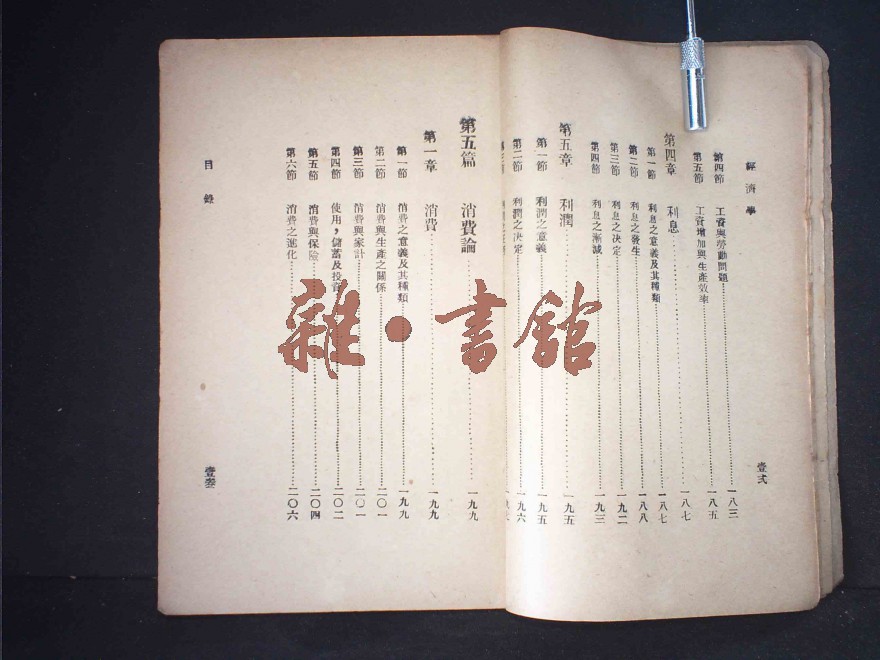 經濟學
第四節 工資與勞動問題 一八三
第五節 工資增加與生產效率 一八五
第四章 利息 一八七
第一節 利息之意義及其種類 一八七
第二節 利息之發生 一八八
第三節 利息之決定 一九二
第四節 利息之漸減 一九三
第五章 利潤 一九五
第一節 利潤之意義 一九五
第二節 利潤之決定 一九六
壹弍
第五篇 消費論 一九九
第一章 消費 一九九
第一節 消費之意義及其種類 一九九
第二節 消費與生產之關係 二〇一
第三節 消費與家計 二〇一
第四節 使用，儲蓄及投資 二〇二
第五節 消費與保險 二〇四
第六節 消費之進化 二〇六
目錄
壹叄
雜·書館